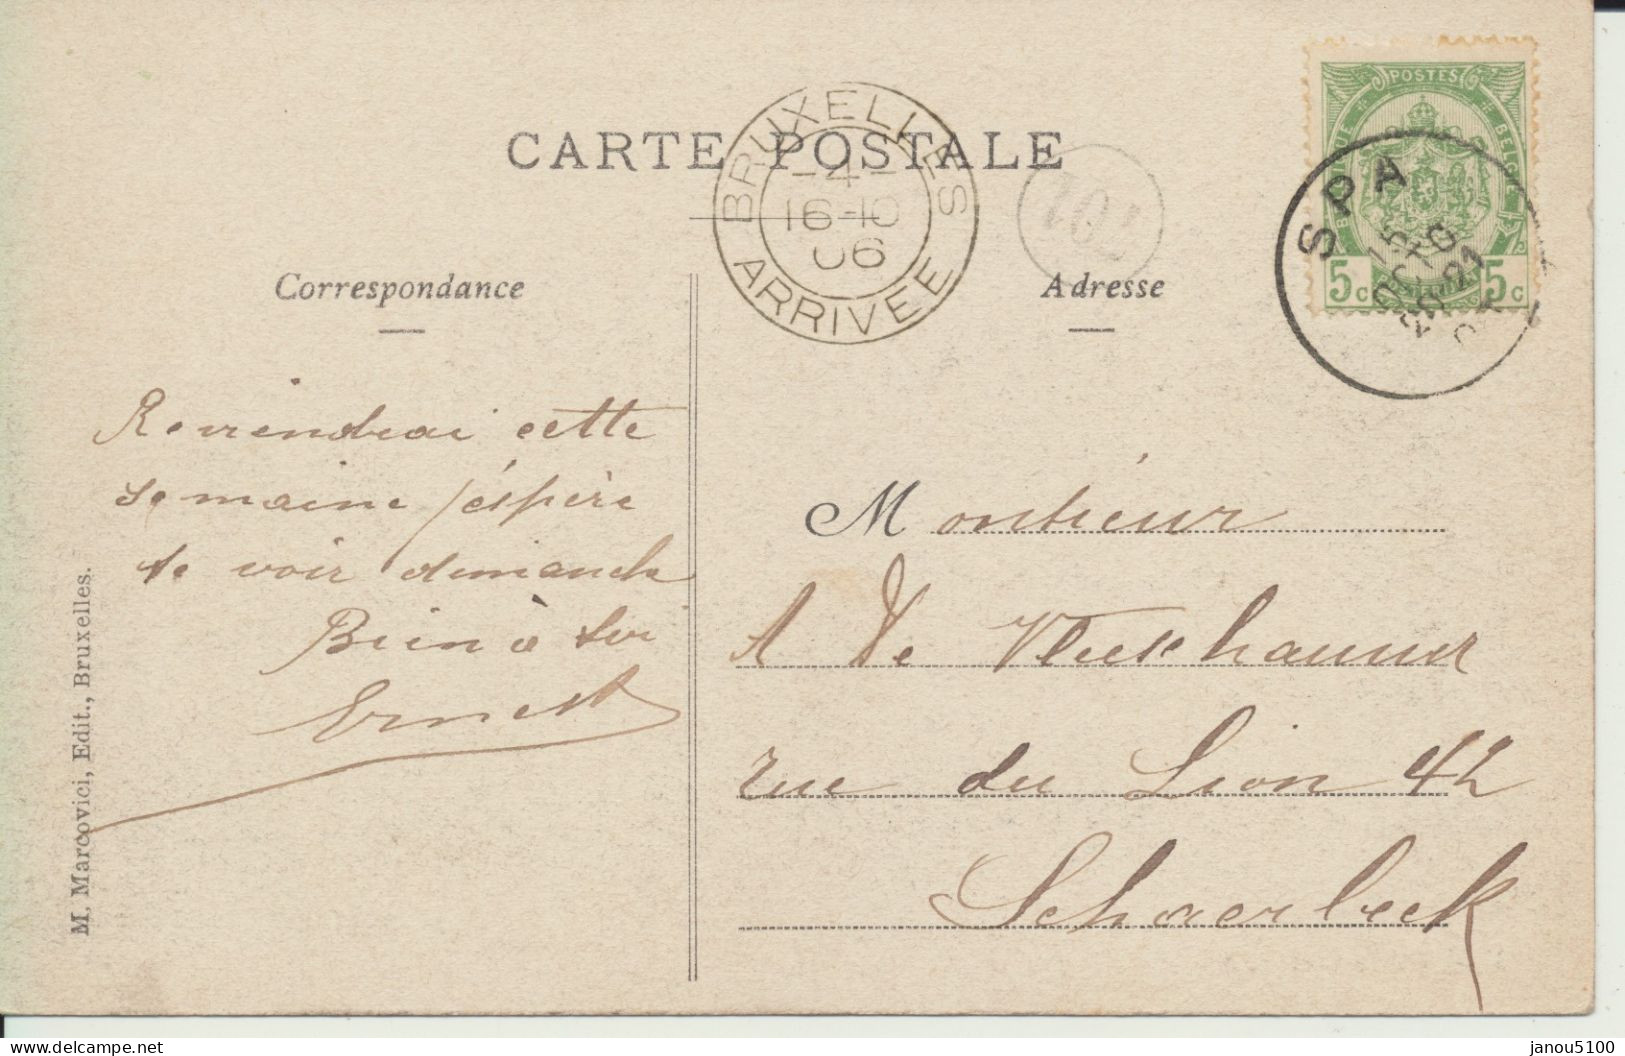 CARTE POSTALE
BRUXELLES
-4-
16-10
06
ARRIVEE
701
POSTES
BELGIQUE
BELGIE
5c 5c
SPA
15
OCTO
20-21
Correspondance
Adresse
Reviendrai cette
semaine j'éspère
te voir dimanche
Bien à toi
Ernest
Monsieur
A De Vleeshauwer
rue du Lion 42
Schaerbeek
M. Marcovici, Edit., Bruxelles.
janou5100
delcampe.net